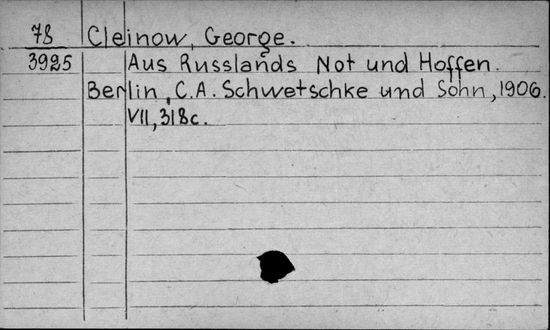 78 Cleinow, George.
3925 Aus Russlands Not und Hoffen.
Berlin, C.A. Schwetschke und Sohn, 1906.
VII, 318c.